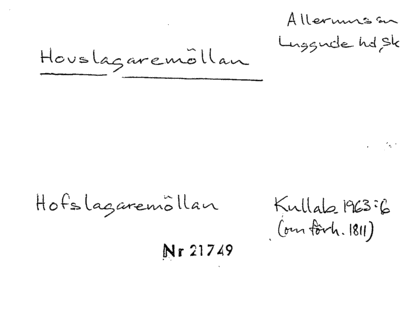 Allerums sn
Luggude hd, Sk
Hovslagaremöllan
Hofslagaremöllan
Kullab. 1963:6
(om förh. 1811)
Nr 21749